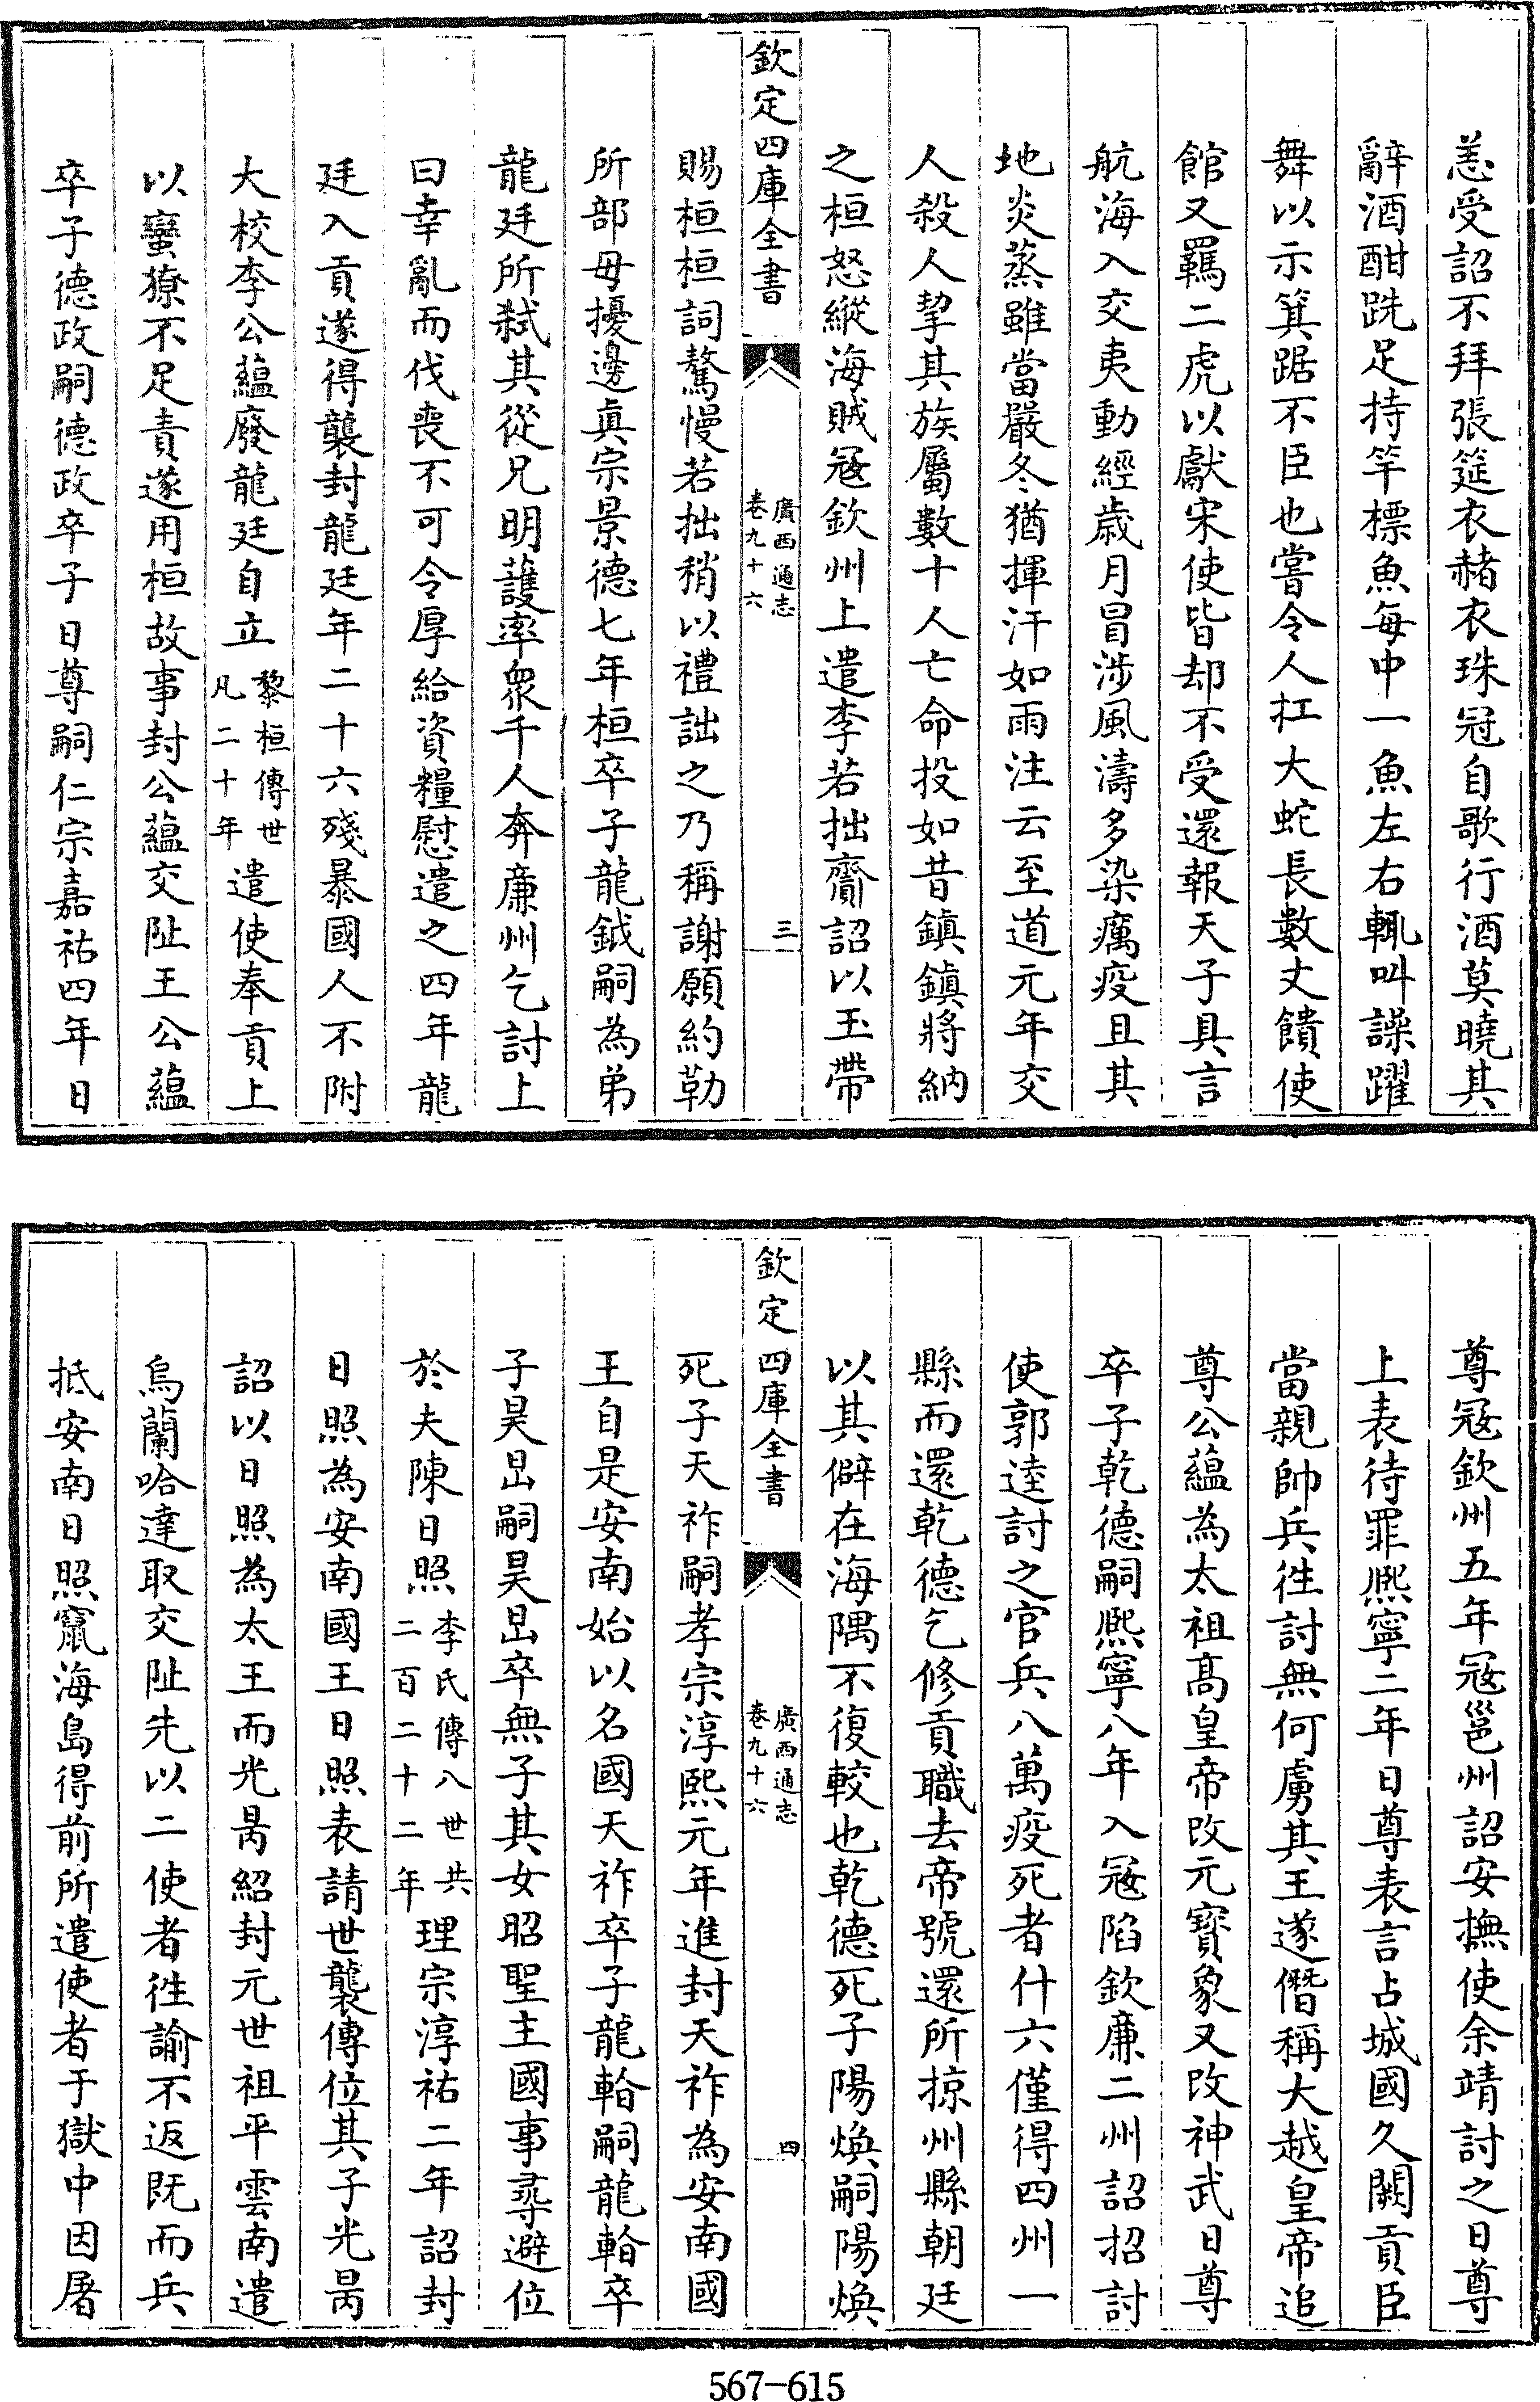 恙受詔不拜張筵衣赭衣珠冠自歌行酒莫曉其
辭酒酣跣足持竿標魚每中一魚左右輒叫譟躍
舞以示箕踞不臣也嘗令人扛大蛇長數丈饋使
館又羈二虎以獻宋使皆却不受還報天子具言
航海入交夷動經歳月冒涉風濤多染癘疫且其
地炎蒸雖當嚴冬猶揮汗如雨注云至道元年交
人殺人挈其族屬數十人亡命投如昔鎮鎮將納
之桓怒縱海賊冦欽州上遣李若拙齎詔以玉帶
欽定四庫全書
廣西通志
卷九十六
三
賜桓桓詞驁慢若拙稍以禮詘之乃稱謝願約勒
所部毋擾邊眞宗景德七年桓卒子龍鉞嗣為弟
龍廷所弒其從兄明護率衆千人奔亷州乞討上
曰幸亂而伐喪不可令厚給資糧慰遣之四年龍
廷入貢遂得襲封龍廷年二十六殘暴國人不附
大校李公藴廢龍廷自立黎桓傳世凡二十年遣使奉貢上
以蠻獠不足責遂用桓故事封公藴交阯王公藴
卒子德政嗣德政卒子日尊嗣仁宗嘉祐四年日
尊冦欽州五年冦邕州詔安撫使余靖討之日尊
上表待罪熈寧二年日尊表言占城國久闕貢臣
當親帥兵徃討無何虜其王遂僭稱大越皇帝追
尊公藴為太祖髙皇帝改元寳象又改神武日尊
卒子乾德嗣熈寧八年入冦陷欽亷二州詔招討
使郭逵討之官兵八萬疫死者什六僅得四州一
縣而還乾德乞修貢職去帝號還所掠州縣朝廷
以其僻在海隅不復較也乾德死子陽煥嗣陽煥
欽定四庫全書
廣西通志
卷九十六
四
死子天祚嗣孝宗淳熙元年進封天祚為安南國
王自是安南始以名國天祚卒子龍翰嗣龍翰卒
子昊旵嗣昊旵卒無子其女昭聖主國事尋避位
於夫陳日照李氏傳八世共二百二十二年理宗淳祐二年詔封
日照為安南國王日照表請世襲傳位其子光昺
詔以日照為太王而光昺紹封元世祖平雲南遣
烏蘭哈達取交阯先以二使者徃諭不返既而兵
抵安南日照竄海島得前所遣使者于獄中因屠
567-615